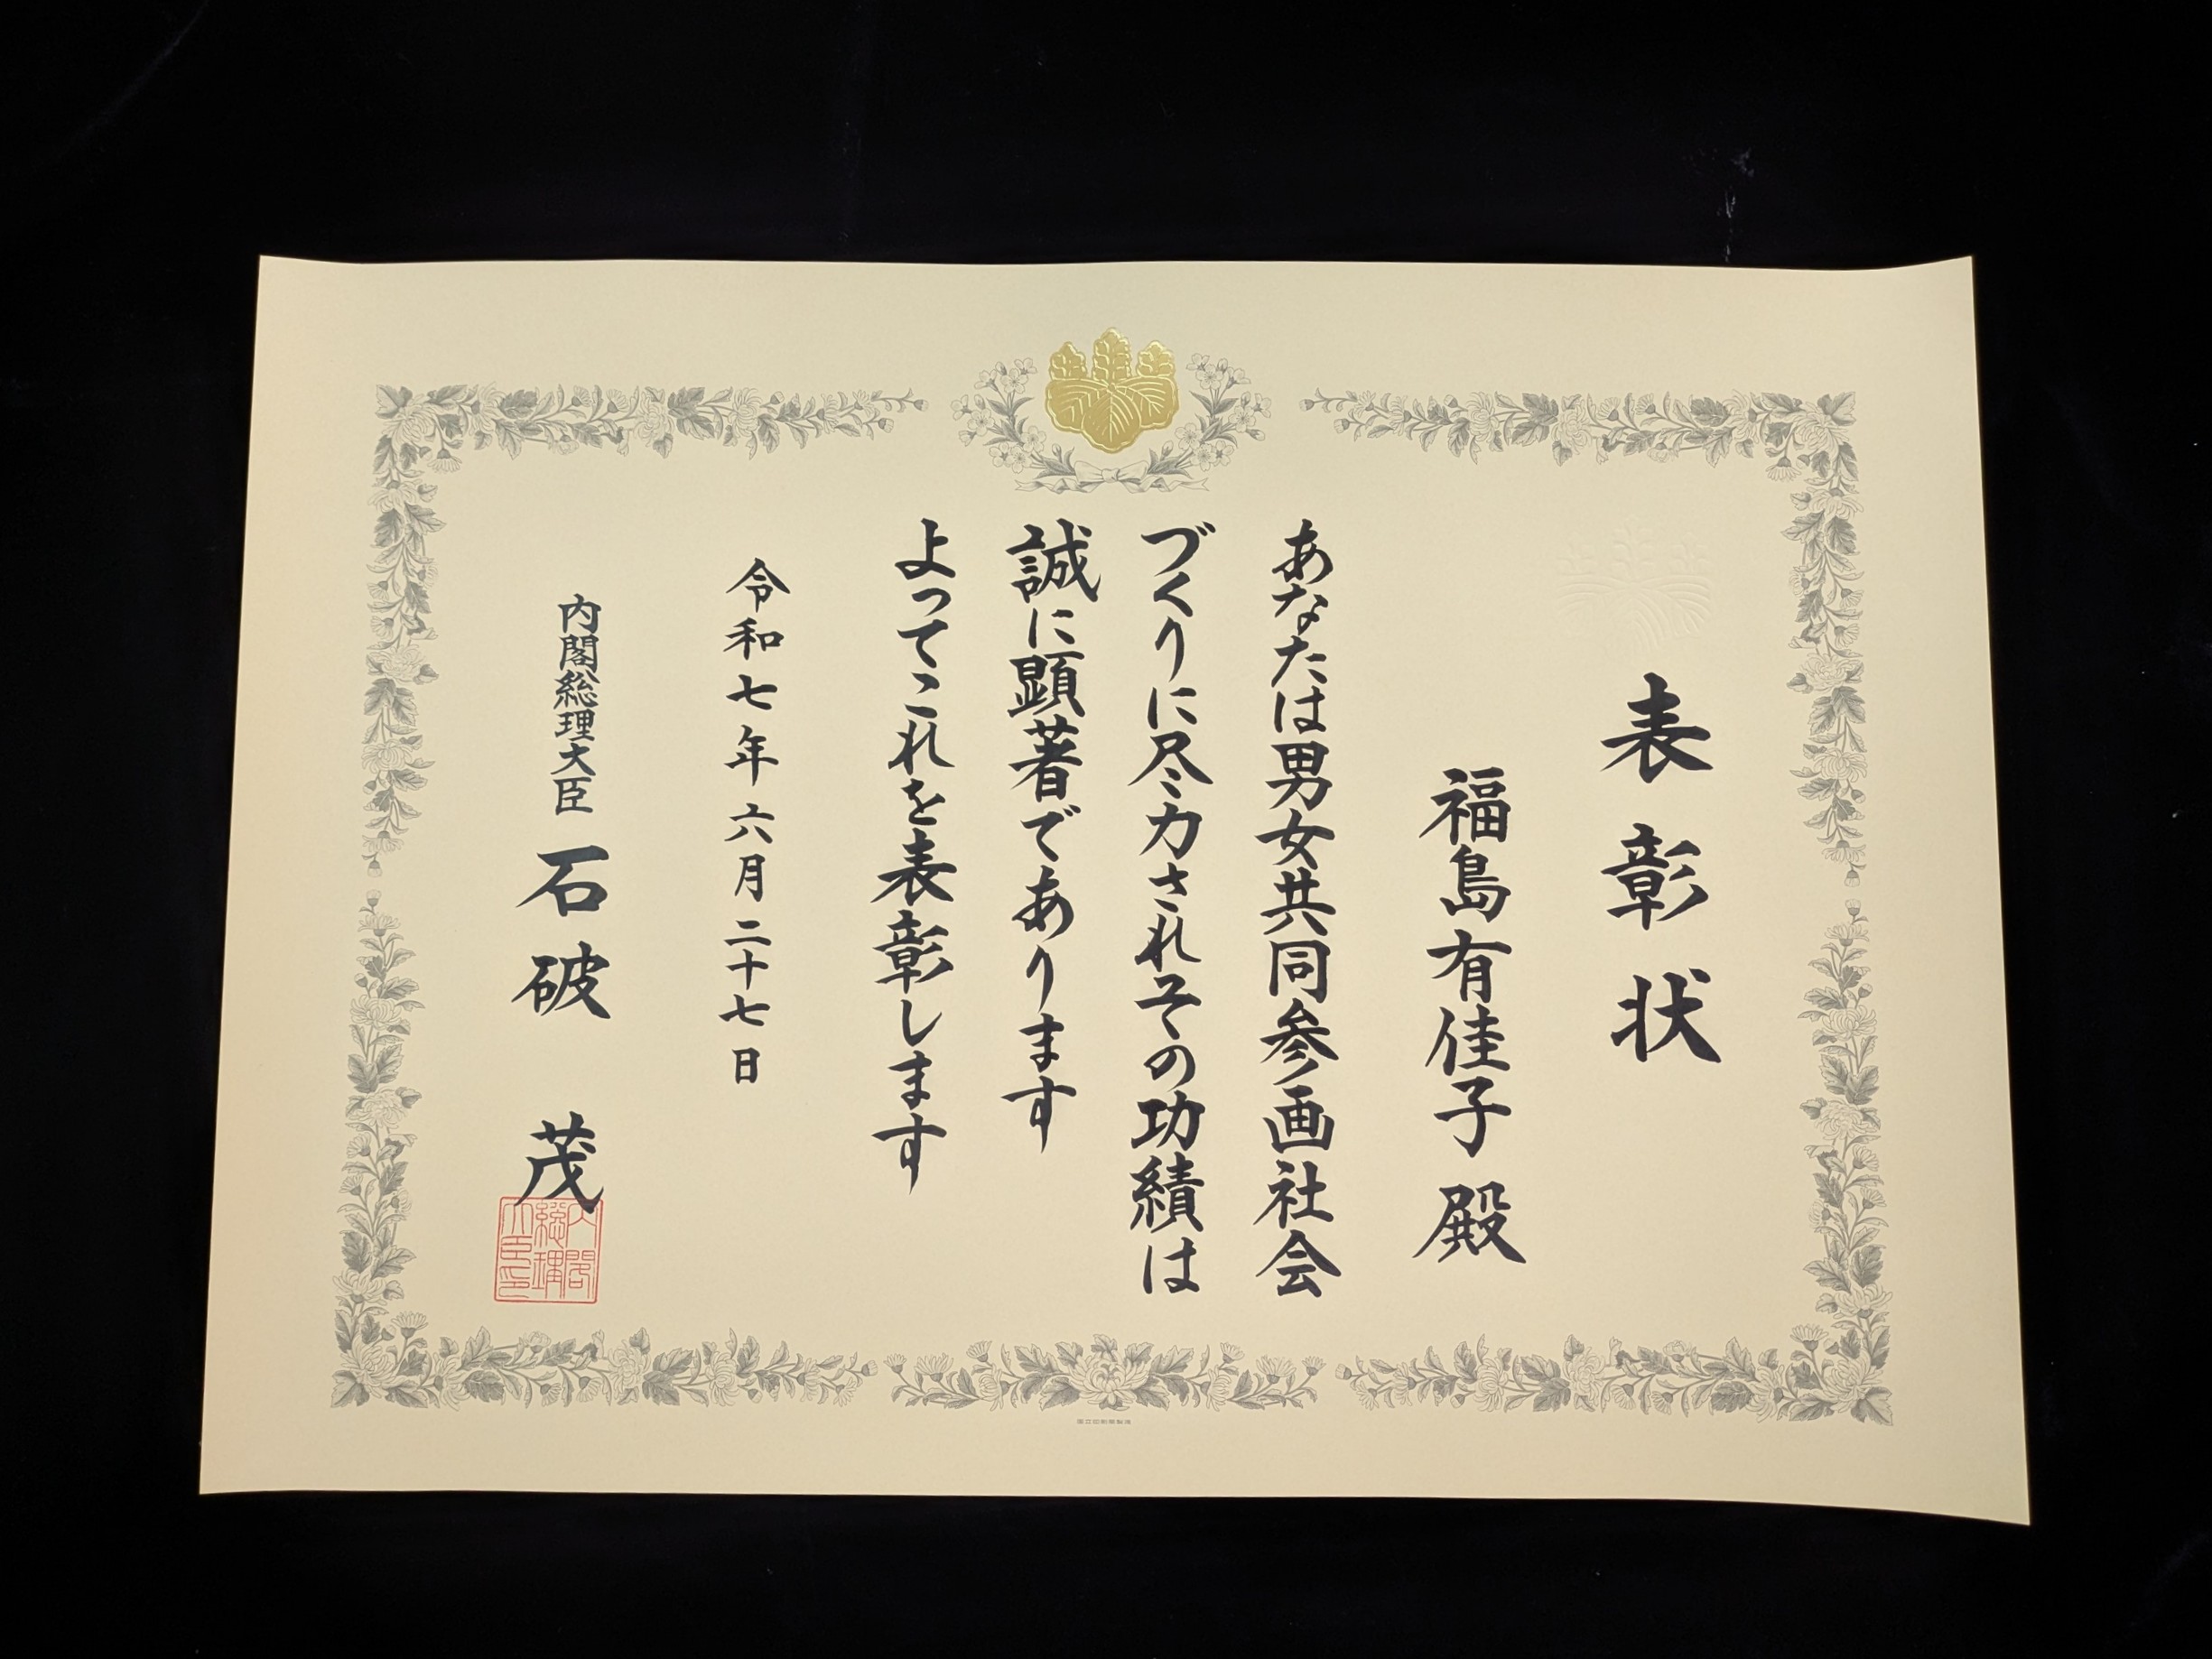 表彰状
福島有佳子殿
あなたは男女共同参画社会
づくりに尽力されその功績は
誠に顕著であります
よってこれを表彰します
令和七年六月二十七日
内閣総理大臣 石破 茂
内閣
総理
大臣印
国立印刷局製造